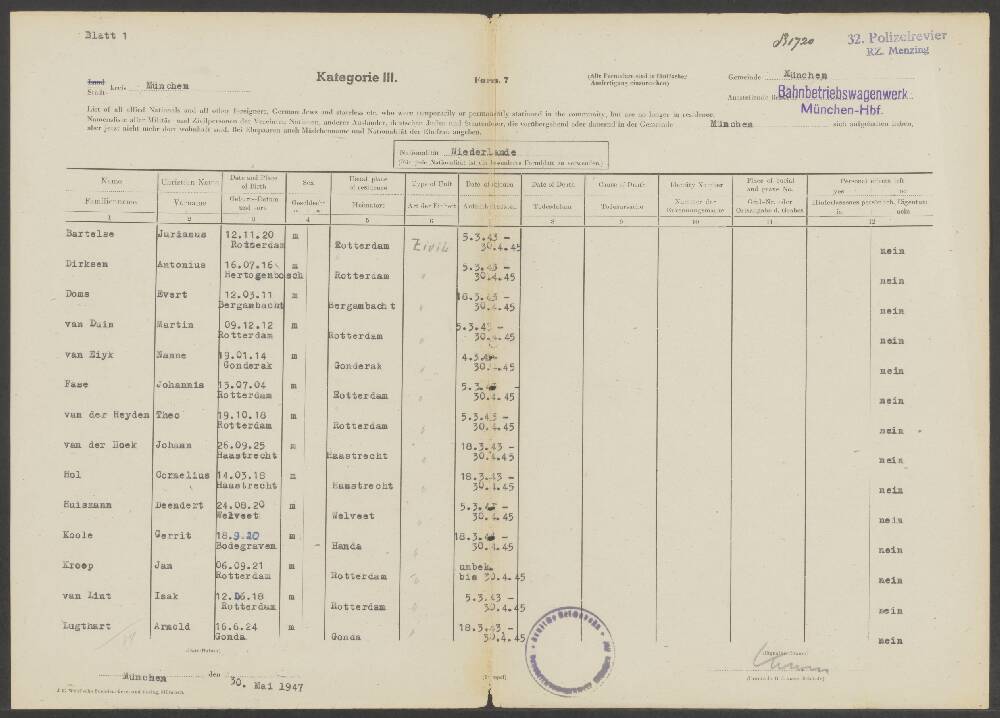 Blatt 1
B1720
32. Polizeirevier
RZ. Menzing
Land
Stadt- kreis München
Kategorie III.
Form. 7
(Alle Formulare sind in fünffacher
Ausfertigung einzureichen)
Gemeinde München
Bahnbetriebswagenwerk
München-Hbf.
List of all allied Nationals and all other Foreigners, German Jews and stateless etc. who were temporarily or permanently stationed in the community, but are no longer in residence.
Namensliste aller Militär- und Zivilpersonen der Vereinten Nationen, anderer Ausländer, deutscher Juden und Staatenloser, die vorübergehend oder dauernd in der Gemeinde München sich aufgehalten haben,
aber jetzt nicht mehr dort wohnhaft sind. Bei Ehepaaren auch Mädchenname und Nationalität der Ehefrau angeben.
Nationalität Niederlande
(Für jede Nationalität ist ein besonderes Formblatt zu verwenden)
Name Christian Name Date and Place of Birth Sex Usual place of residence Type of Unit Date of sejourn Date of Death Cause of Death Identity Number Place of burial and grave No. Personel effects left yes no
Familienname Vorname Geburts-Datum und -ort Geschlecht Heimatort Art der Einheit Aufenthaltszeit Todesdatum Todesursache Nummer der Erkennungsmarke Grab-Nr. oder Ortsangabe d. Grabes Hinterlassenes persönlich. Eigentum ja nein
1 2 3 4 5 6 7 8 9 10 11 12
Bartelse Jurianus 12.11.20 m 5.3.43 -
Rotterdam Rotterdam Zivil 30.4.45 nein
Dirksen Antonius 16.07.16 m 5.3.43 -
Hertogenbosch Rotterdam " 30.4.45 nein
Doms Evert 12.03.11 m 18.3.43 -
Bergambacht Bergambacht " 30.4.45 nein
van Duin Martin 09.12.12 m 5.3.43 -
Rotterdam Rotterdam " 30.4.45 nein
van Eiyk Nanne 19.01.14 m 4.3.
Gonderak Gonderak " 30.4.45 nein
Fase Johannis 13.07.04 m 5.3. -
Rotterdam Rotterdam " 30.4.45 nein
van der Heyden Theo 19.10.18 m 5.3.43 -
Rotterdam Rotterdam " 30.4.45 nein
van der Hoek Johann 26.09.25 m 18.3.43 -
Haastrecht Haastrecht " 30.4.45 nein
Hol Cornelius 14.03.18 m 18.3.43 -
Haastrecht Haastrecht " 30.4.45 nein
Huismann Deendert 24.08.20 m 5.3.43 -
Welveet Welveet " 30.4.45 nein
Koole Gerrit 18.9.20 m 18.3. -
Bodegraven - Handa " 30.4.45 nein
Kroep Jan 06.09.21 m unbek.
Rotterdam Rotterdam " bis 30.4.45 nein
van Lint Isak 12.06.18 m 5.3.43 -
Rotterdam Rotterdam " 30.4.45 nein
Lugthart Arnold 16.6.24 m 18.3.43 -
Gonda Gonda " 30.4.45 nein
(Date/Datum)
(Signature)
München den 30. Mai 1947
(Stempel)